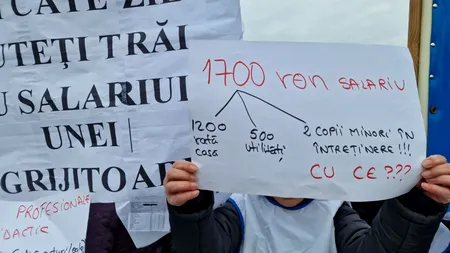 CATE ZIL
UTEȚI TRĂI
U SALARIUL
UNEI
GRIJITOARE
PROFESIONALE
DIDACTIC
1700 ron SALARIU
1200 rată casă
500 utilități
2 COPII MINORI ÎN ÎNTREȚINERE !!!
CU CE ???